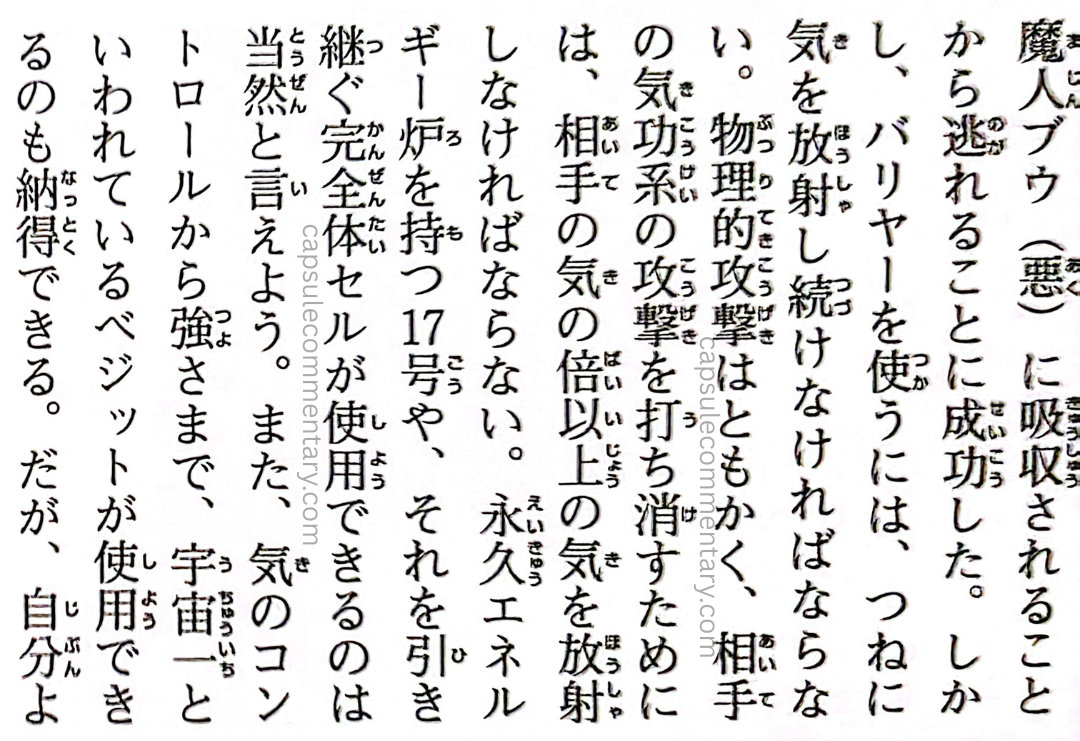 魔人ブウ（悪）に吸収されること
から逃れることに成功した。しか
し、バリヤーを使うには、つねに
気を放射し続けなければならな
い。物理的攻撃はともかく、相手
の気功系の攻撃を打ち消すために
は、相手の気の倍以上の気を放射
しなければならない。永久エネル
ギー炉を持つ17号や、それを引き
継ぐ完全体セルが使用できるのは
当然と言えよう。また、気のコン
トロールから強さまで、宇宙一と
いわれているベジットが使用でき
るのも納得できる。だが、自分よ
capsulecommentary.com
capsulecommentary.com